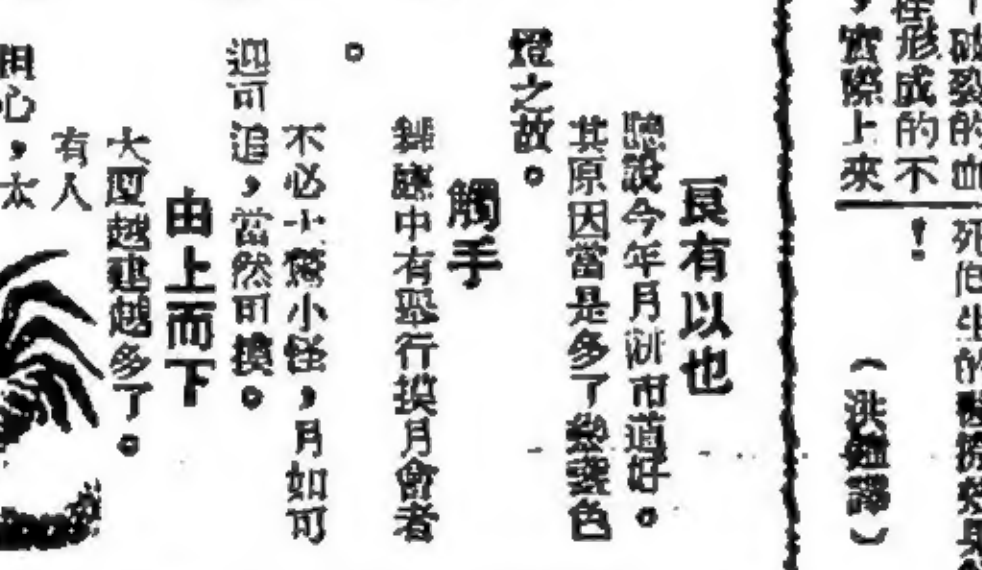 下破裂的血
形成的不
，實際上來
死他生的
！
（洪　譯）
良有以也
聽說今年月餅市道好。
其原因當是多了幾盞色
燈之故。
觸手
舞廳中有舉行摸月會者
。
不必少驚小怪，月如可
迎可追，當然可摸。
由上而下
大型越建越多了。
有人
用心，太